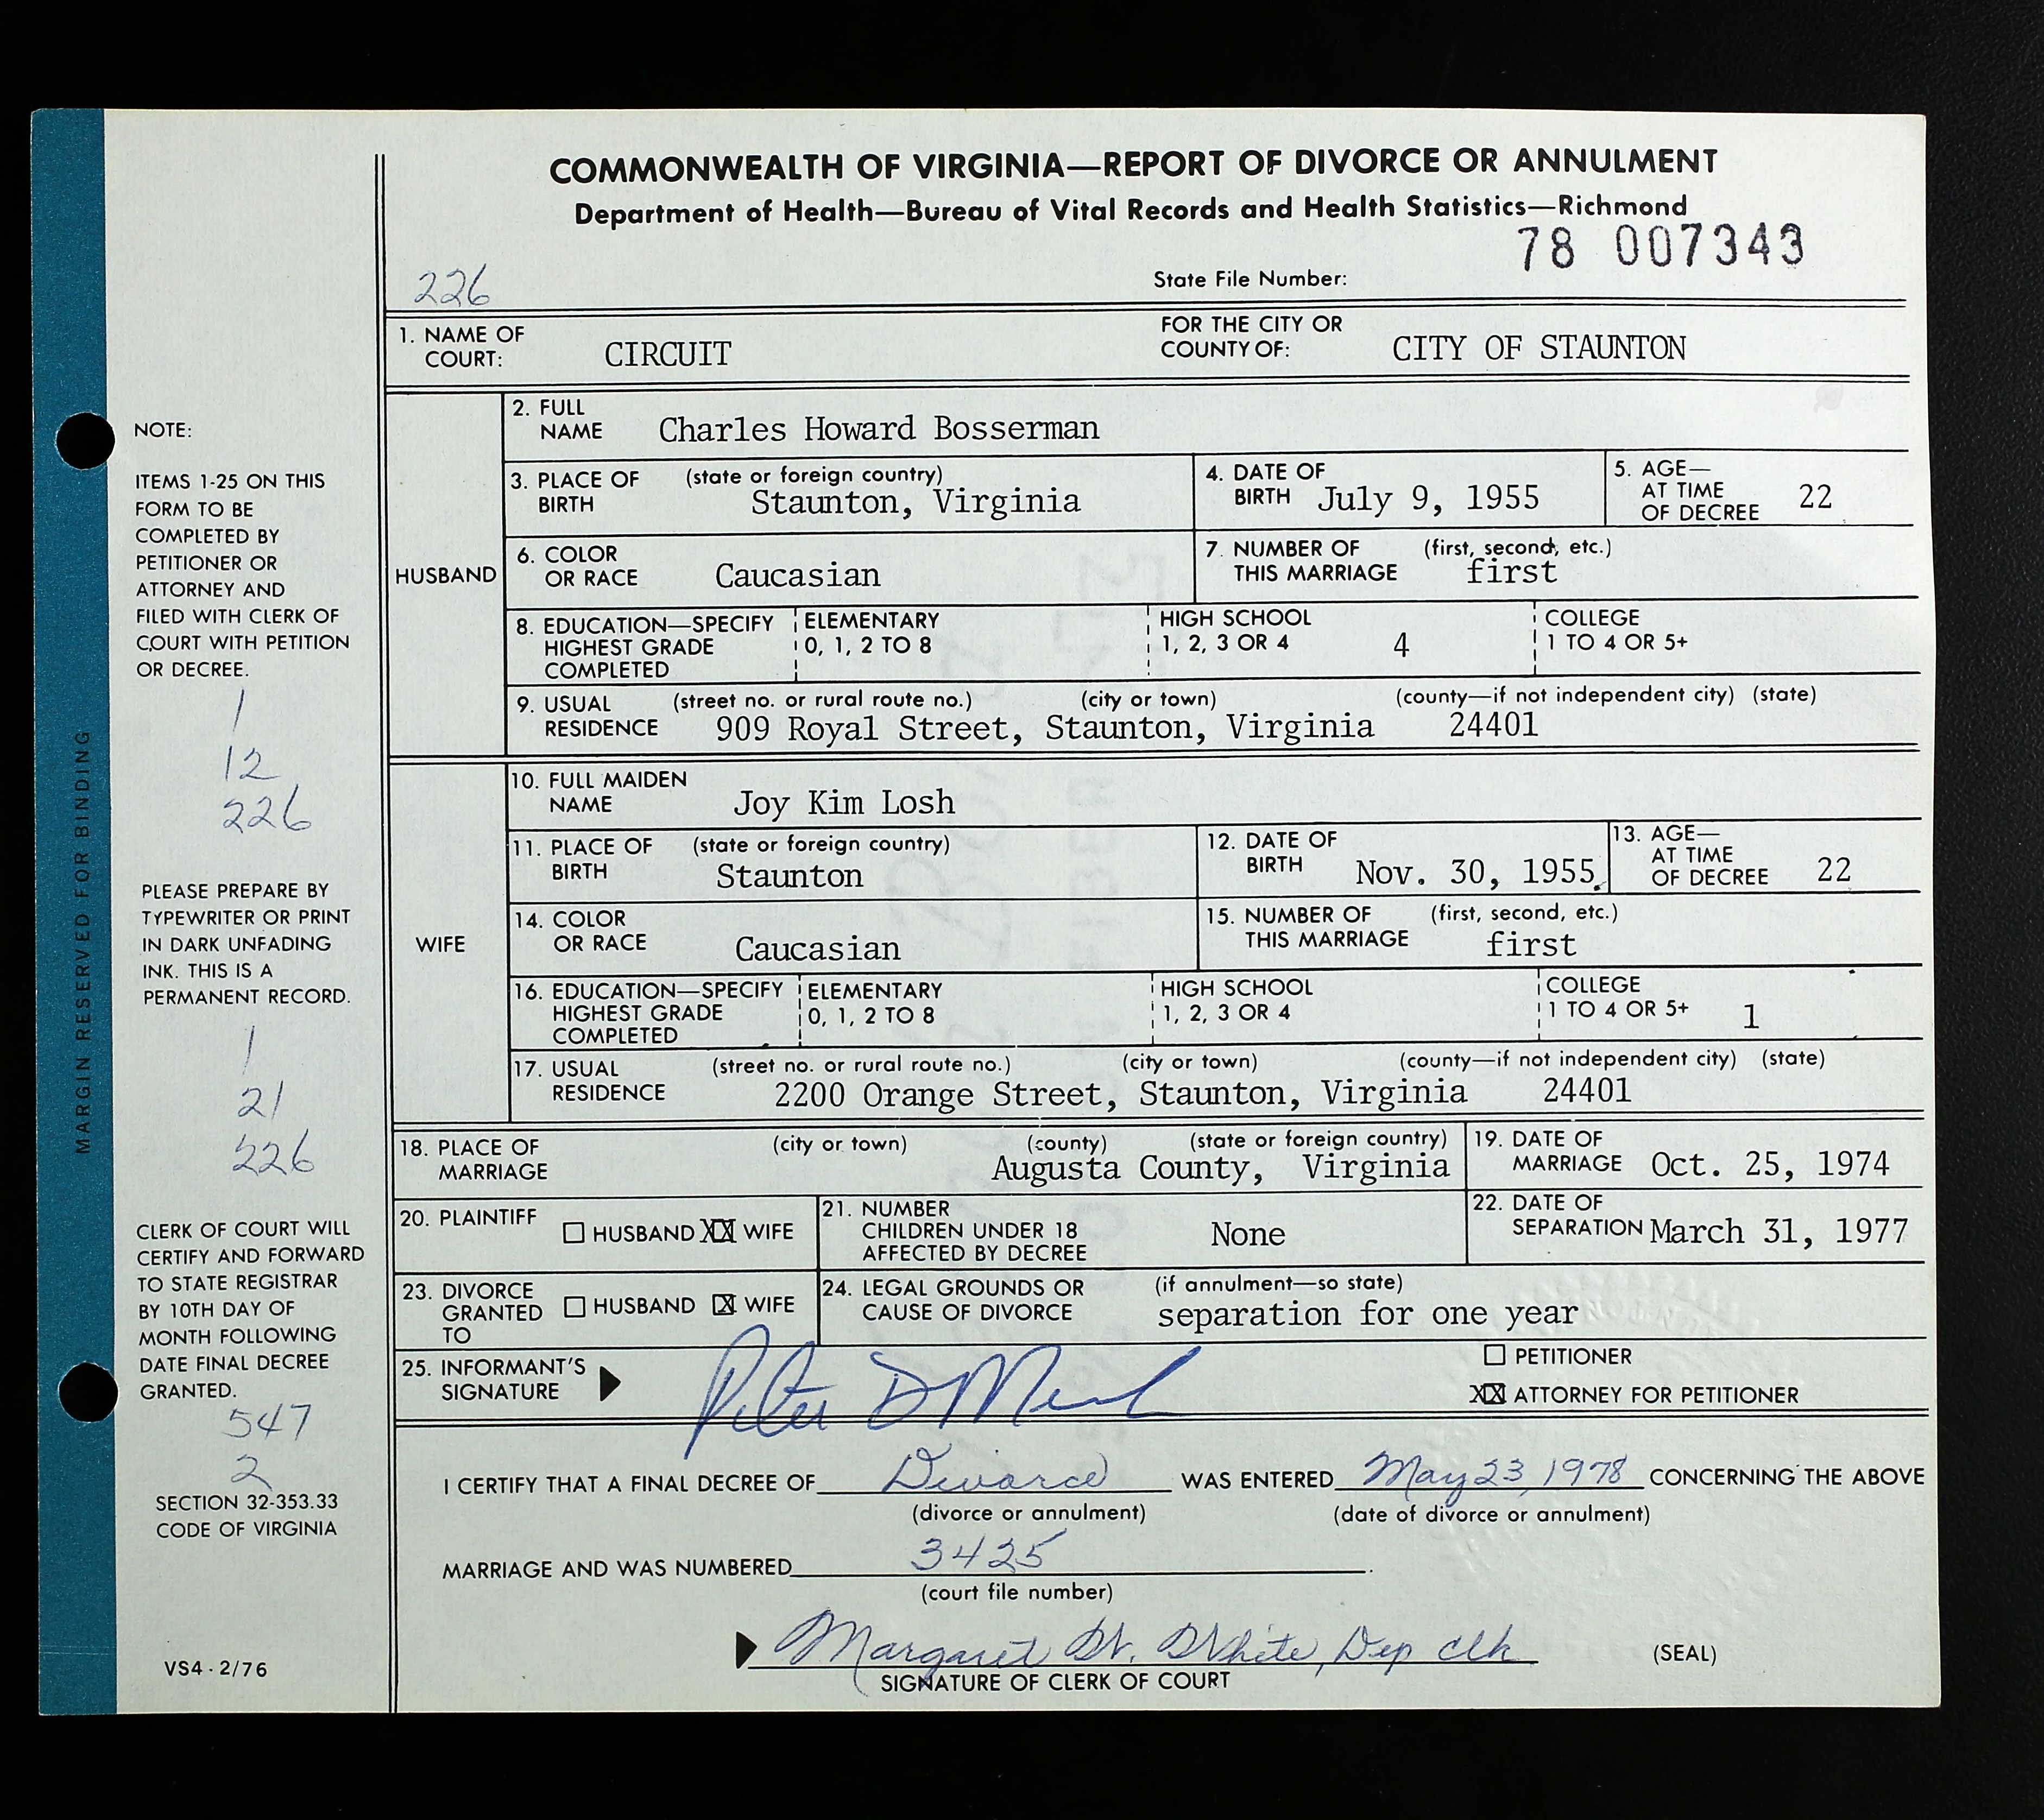 COMMONWEALTH OF VIRGINIA—REPORT OF DIVORCE OR ANNULMENT
Department of Health—Bureau of Vital Records and Health Statistics—Richmond
78 007343
226
State File Number:
1. NAME OF COURT: CIRCUIT FOR THE CITY OR COUNTY OF: CITY OF STAUNTON
HUSBAND
2. FULL NAME Charles Howard Bosserman
3. PLACE OF BIRTH (state or foreign country) Staunton, Virginia
4. DATE OF BIRTH July 9, 1955
5. AGE— AT TIME OF DECREE 22
6. COLOR OR RACE Caucasian
7. NUMBER OF THIS MARRIAGE (first, second, etc.) first
8. EDUCATION—SPECIFY HIGHEST GRADE COMPLETED ELEMENTARY 0, 1, 2 TO 8 HIGH SCHOOL 1, 2, 3 OR 4 4 COLLEGE 1 TO 4 OR 5+
9. USUAL RESIDENCE (street no. or rural route no.) (city or town) (county—if not independent city) (state)
909 Royal Street, Staunton, Virginia 24401
WIFE
10. FULL MAIDEN NAME Joy Kim Losh
11. PLACE OF BIRTH (state or foreign country) Staunton
12. DATE OF BIRTH Nov. 30, 1955
13. AGE— AT TIME OF DECREE 22
14. COLOR OR RACE Caucasian
15. NUMBER OF THIS MARRIAGE (first, second, etc.) first
16. EDUCATION—SPECIFY HIGHEST GRADE COMPLETED ELEMENTARY 0, 1, 2 TO 8 HIGH SCHOOL 1, 2, 3 OR 4 COLLEGE 1 TO 4 OR 5+ 1
17. USUAL RESIDENCE (street no. or rural route no.) (city or town) (county—if not independent city) (state)
2200 Orange Street, Staunton, Virginia 24401
18. PLACE OF MARRIAGE (city or town) (county) (state or foreign country) Augusta County, Virginia
19. DATE OF MARRIAGE Oct. 25, 1974
20. PLAINTIFF HUSBAND XX WIFE
21. NUMBER CHILDREN UNDER 18 AFFECTED BY DECREE None
22. DATE OF SEPARATION March 31, 1977
23. DIVORCE GRANTED TO HUSBAND X WIFE
24. LEGAL GROUNDS OR CAUSE OF DIVORCE (if annulment—so state) separation for one year
25. INFORMANT'S SIGNATURE Peter D
PETITIONER
XX ATTORNEY FOR PETITIONER
I CERTIFY THAT A FINAL DECREE OF Divorce WAS ENTERED May 23, 1978 CONCERNING THE ABOVE
(divorce or annulment) (date of divorce or annulment)
MARRIAGE AND WAS NUMBERED 3425.
(court file number)
Margaret W. White, Dep Clk (SEAL)
SIGNATURE OF CLERK OF COURT
MARGIN RESERVED FOR BINDING
NOTE:
ITEMS 1-25 ON THIS
FORM TO BE
COMPLETED BY
PETITIONER OR
ATTORNEY AND
FILED WITH CLERK OF
COURT WITH PETITION
OR DECREE.
1
12
226
PLEASE PREPARE BY
TYPEWRITER OR PRINT
IN DARK UNFADING
INK. THIS IS A
PERMANENT RECORD.
1
21
226
CLERK OF COURT WILL
CERTIFY AND FORWARD
TO STATE REGISTRAR
BY 10TH DAY OF
MONTH FOLLOWING
DATE FINAL DECREE
GRANTED.
547
2
SECTION 32-353.33
CODE OF VIRGINIA
VS4 - 2/76